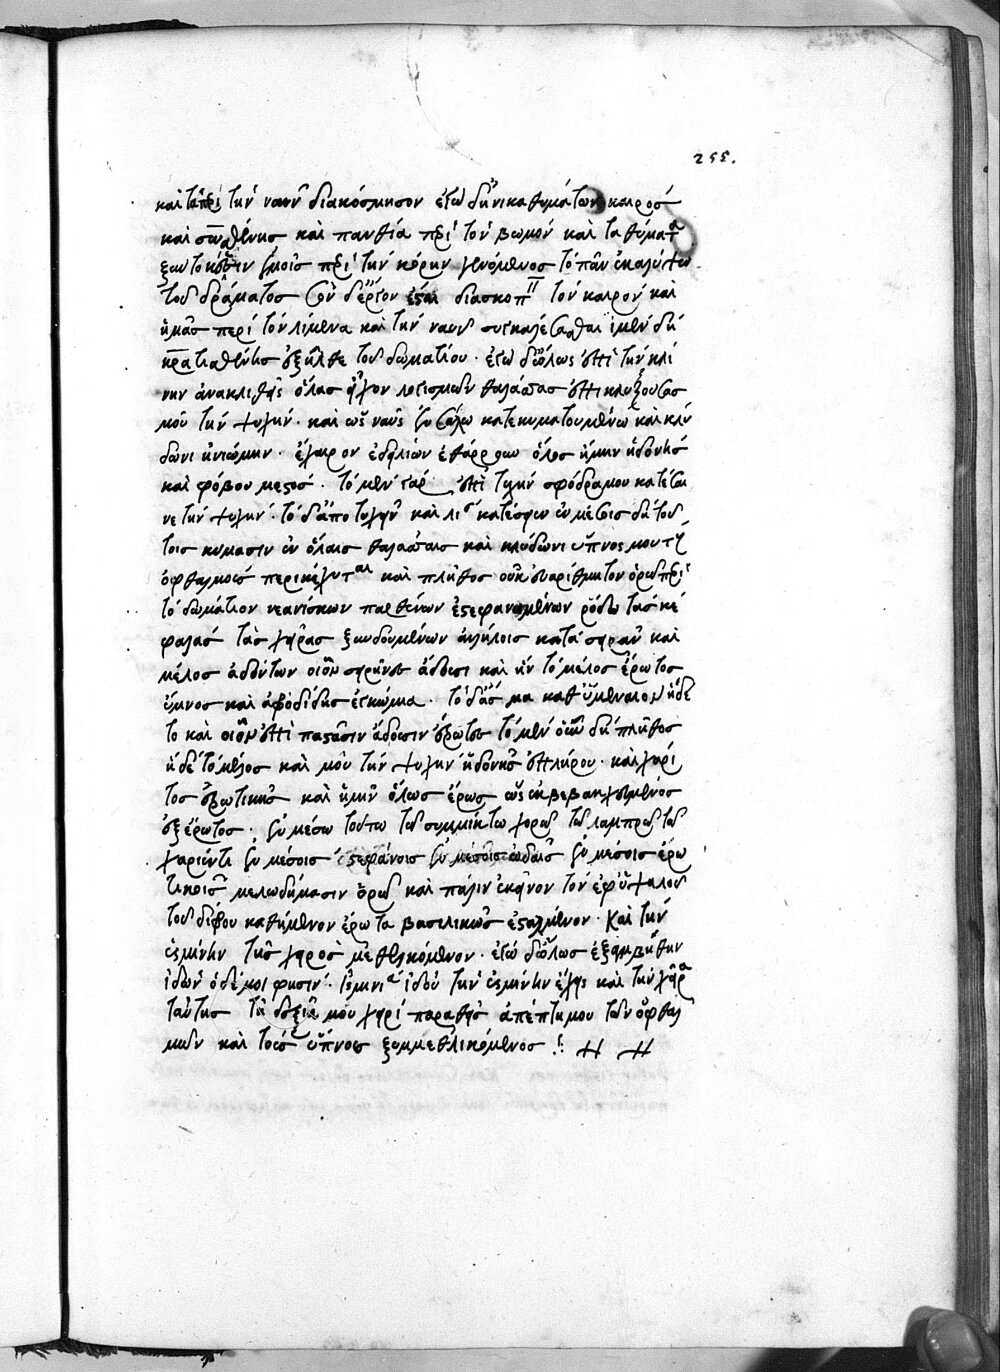 255.
καὶ τὰ περὶ τὴν ναῦν διακόσμησον ἐγὼ δ' ἡνίκα θυμάτων καιρὸς
καὶ σωσθένης καὶ πανθία περὶ τὸν βωμὸν καὶ τὰ θύματα
ξὺν τούτοις ἐμοῖς περὶ τὴν κόρην γενόμενος τὸ πᾶν ἐκκαλύπτω
τοῦ δράματος σὸν δ' ἔργον ἔσται διασκοπεῖν τὸν καιρὸν καὶ
ἡμᾶς περὶ τὸν λιμένα καὶ τὴν ναῦν συγκαλέσασθαι ὁ μὲν δὴ
κρατισθένης ἐξῆλθε τοῦ δωματίου· ἐγὼ δ' ὅλως ἐπὶ τὴν κλί
νην ἀνακλιθεὶς ὅλας εἶχον λογισμῶν θαλάσσας ἐπικλυζούσας
μου τὴν ψυχήν· καὶ ὡς ναῦς ἐν σάλῳ κατεκυματούμην καὶ κλύ
δωνι ἠντιώμην· ἔχαιρον ἐδειλίων ἐθάρρουν ὅλος ἤμην ἡδονῆς
καὶ φόβου μεστός· τὸ μὲν γὰρ ἐπιτυχὴν σφόδρα μου κατέσαι
νε τὴν ψυχήν· τὸ δ' ἀποτυχεῖν καὶ λίαν κατέσειεν ἐν μέσοις δὴ τού
τοις κύμασιν ἐν ὅλαις θαλάσσαις καὶ κλύδωνι ὕπνος μου τοῖς
ὀφθαλμοῖς περικέχυται καὶ πλῆθος οὐκ εὐαρίθμητον ὁρῶ περὶ
τὸ δωμάτιον νεανίσκων παρθένων ἐστεφανωμένων ῥόδῳ τὰς κε
φαλὰς τὰς χεῖρας ξυνδουμένων ἀλλήλοις κατὰ σειρὰν καὶ
μέλος ᾀδόντων οἷον σειρῆνες ᾄδουσι καὶ ἦν τὸ μέλος ἔρωτος
ὕμνος καὶ ἀφροδίτης ἐγκώμια· τὸ δ' ᾆσμα καθυμέναιον ᾔδε
το καὶ οἷον ἐπὶ παστάσιν ᾄδουσιν ἔρωτες τὸ μὲν οὖν δὴ πλῆθος
ἥ δὲ τὸ μέλος καὶ μου τὴν ψυχὴν ἡδονῆς ἐπλήρου· καὶ χάρι
τος ἐρωτικῆς καὶ ἤμην ὅλως ἔρως ὡς ἐκβεβακχευμένος
ἐξ ἔρωτος· ἐν μέσῳ τούτῳ τοῦ συμμίκτῳ χορῷ τοῦ λαμπροῦ τοῦ
χαρίεντι ἐν μέσοις στεφάνοις ἐν μέσοις ᾠδαῖς ἐν μέσοις ἐρω
τικοῖς μελῳδήμασιν ὁρῶ καὶ πάλιν ἐκεῖνον τὸν ἐφ' ὑψηλοῦ
τοῦ δίφρου καθήμενον ἔρωτα βασιλικῶς ἐσταλμένον· καὶ τὴν
ὑσμίνην τῆς χειρὸς μεθελκόμενον· ἐγὼ δ' ὅλως ἐξεθαμβήθην
ἰδών ὁ δέ μοι φησίν· ὑσμινία ἰδοὺ τὴν ὑσμίνην ἔχεις καὶ τὴν χεῖρα
ταύτης τῇ δεξιᾷ μου χειρὶ παραθεὶς ἀπέπτη μου τῶν ὀφθαλ
μῶν καὶ τοὺς ὕπνους ξυμμεθελκόμενος :·